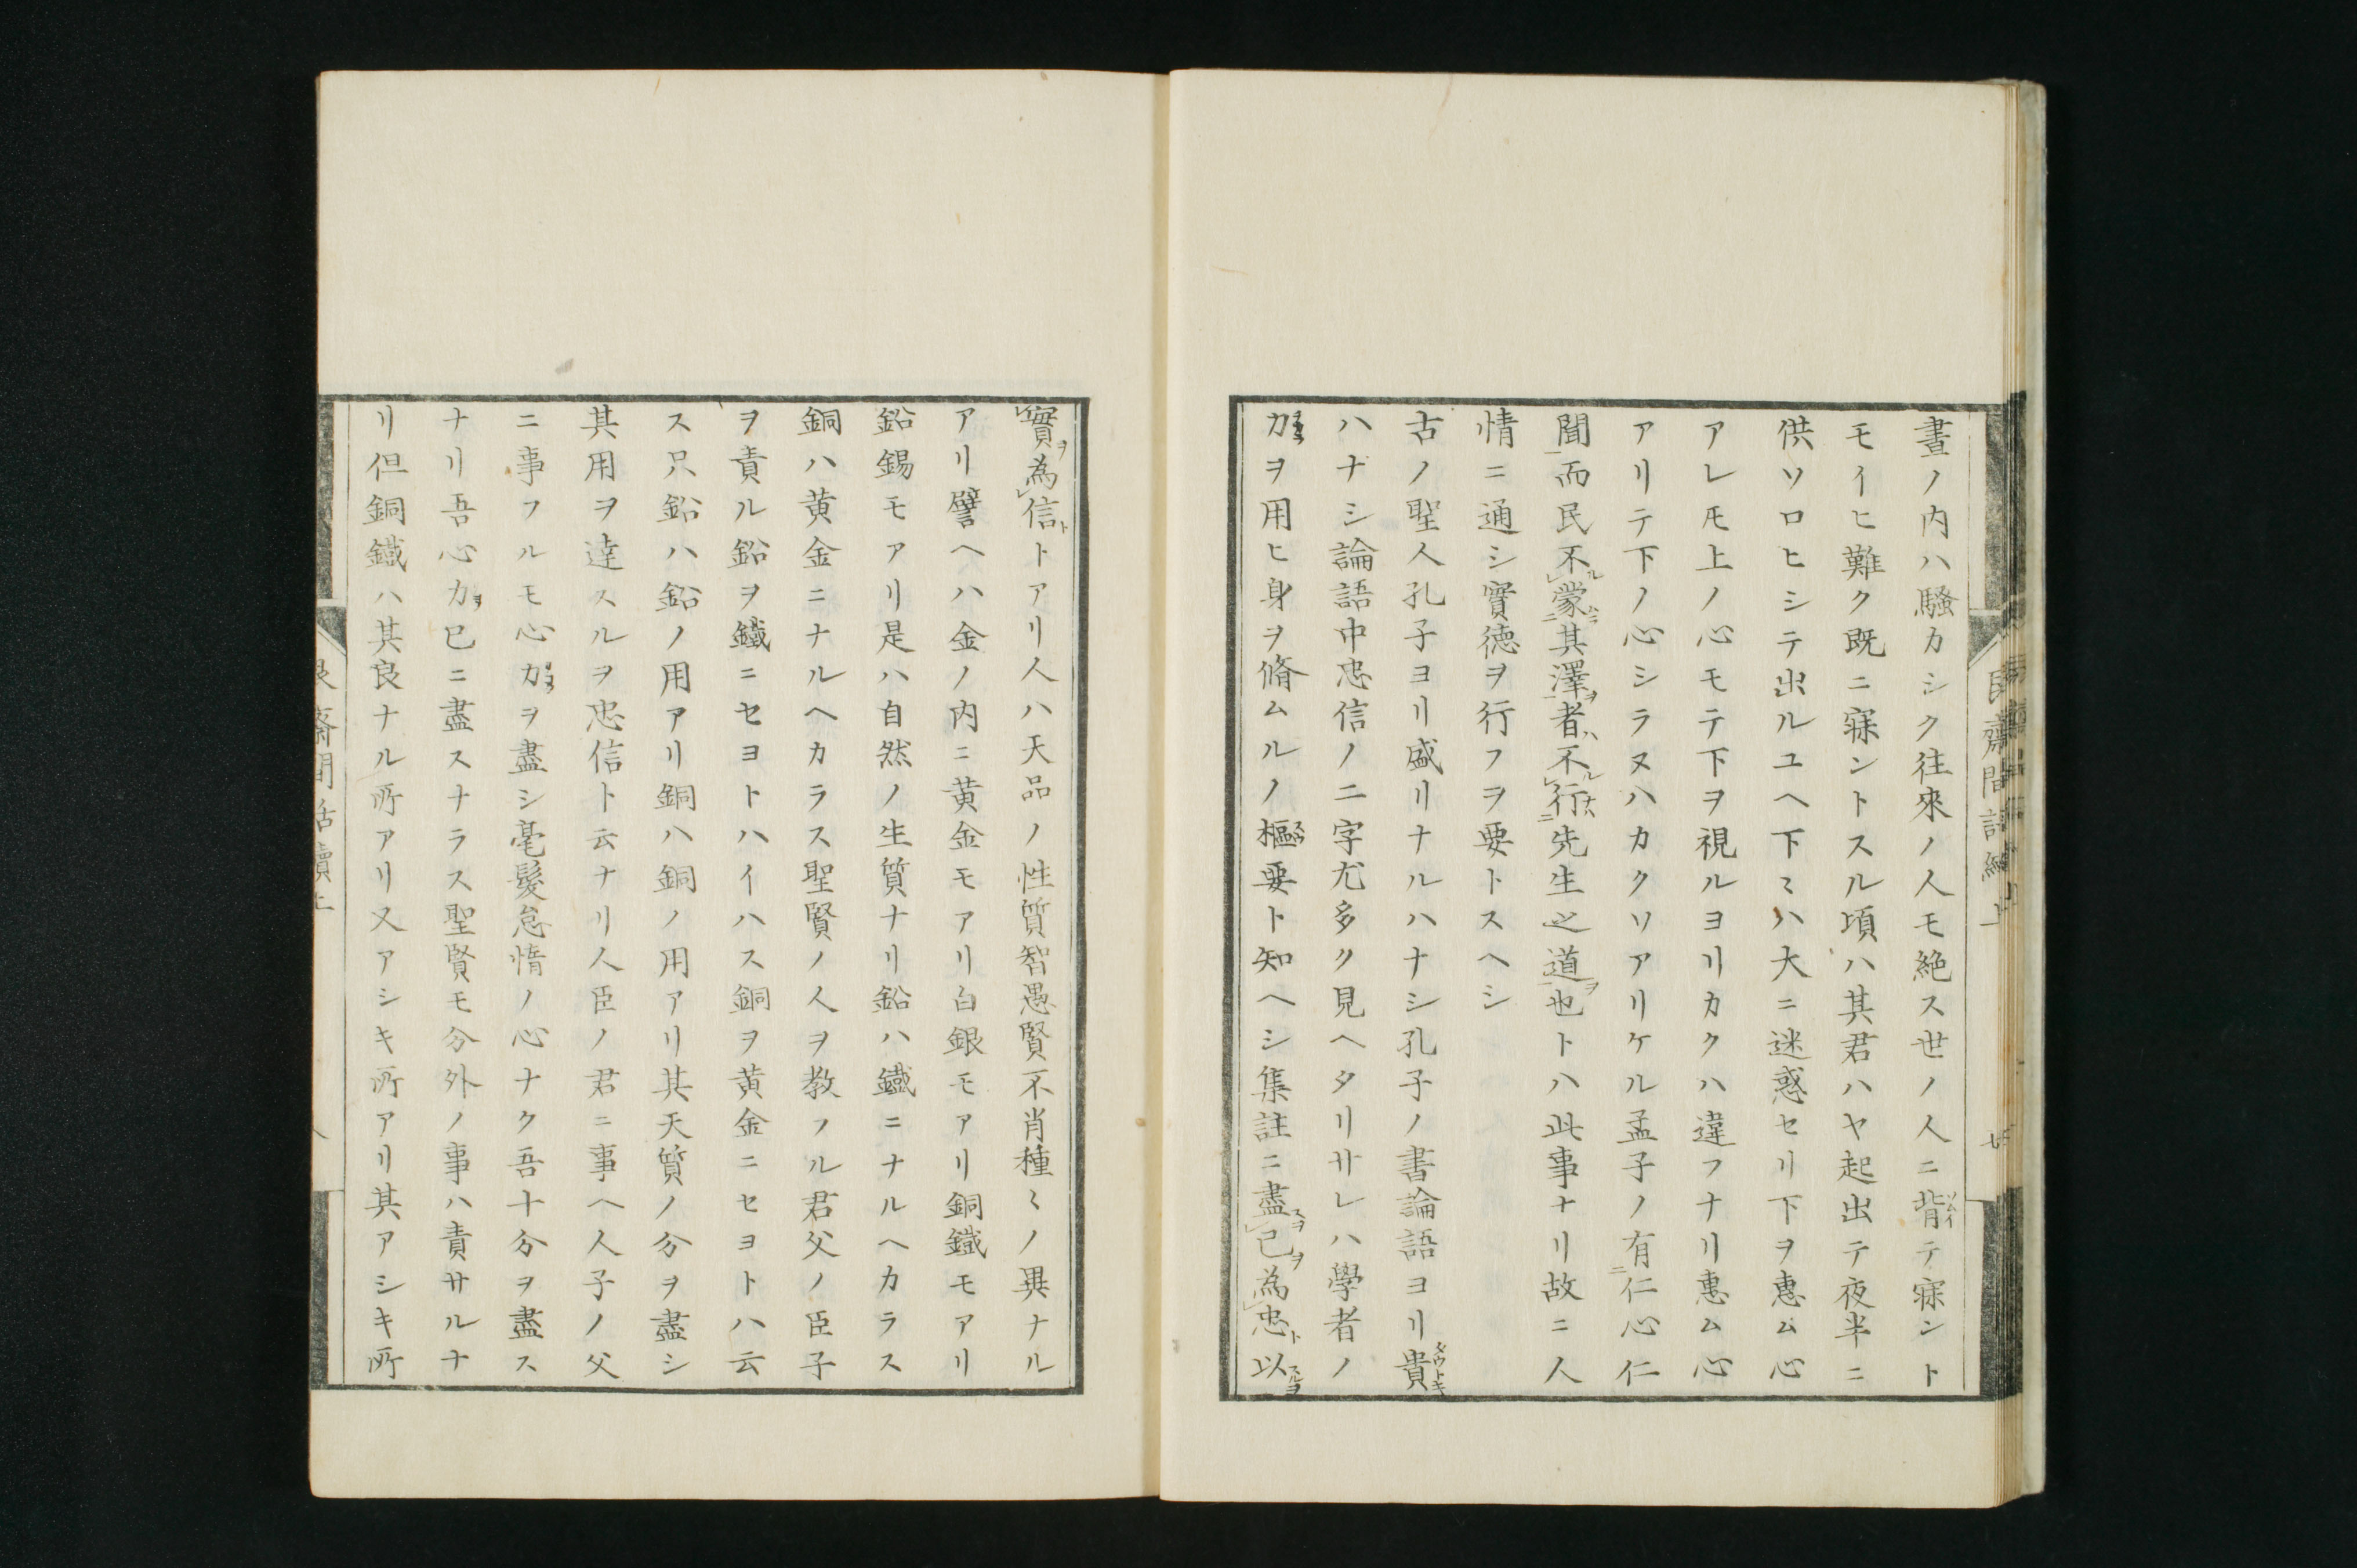 晝ノ内ハ騷カシク往來ノ人モ絶ス世ノ人ニ背テ寐ント
モイヒ難ク既ニ寐ントスル頃ハ其君ハヤ起出テ夜半ニ
供ソロヒシテ出ルユヘ下〻ハ大ニ迷惑セリ下ヲ惠ム心
アレ𪜈上ノ心モテ下ヲ視ルヨリカクハ違フナリ惠ム心
アリテ下ノ心シラヌハカクソアリケル孟子ノ有仁心仁
聞而民不蒙其澤者不行先生之道也トハ此事ナリ故ニ人
情ニ通シ實德ヲ行フヲ要トスヘシ
古ノ聖人孔子ヨリ盛リナルハナシ孔子ノ書論語ヨリ貴
ハナシ論語中忠信ノ二字尤多ク見ヘタリサレハ學者ノ
力ヲ用ヒ身ヲ脩ムルノ樞要ト知ヘシ集註ニ盡己為忠以
實為信トアリ人ハ天品ノ性質智愚賢不肖種〻ノ異ナル
アリ譬ヘハ金ノ内ニ黄金モアリ白銀モアリ銅鐵モアリ
鉛錫モアリ是ハ自然ノ生質ナリ鉛ハ鐵ニナルヘカラス
銅ハ黄金ニナルヘカラス聖賢ノ人ヲ教フル君父ノ臣子
ヲ責ル鉛ヲ鐵ニセヨトハイハス銅ヲ黄金ニセヨトハ云
ス只鉛ハ鉛ノ用アリ銅ハ銅ノ用アリ其天質ノ分ヲ盡シ
其用ヲ達スルヲ忠信ト云ナリ人臣ノ君ニ事ヘ人子ノ父
ニ事フルモ心力ヲ盡シ毫髮怠惰ノ心ナク吾十分ヲ盡ス
ナリ吾心力已ニ盡スナラス聖賢モ分外ノ事ハ責サルナ
リ但銅鐵ハ其良ナル所アリ又アシキ所アリ其アシキ所